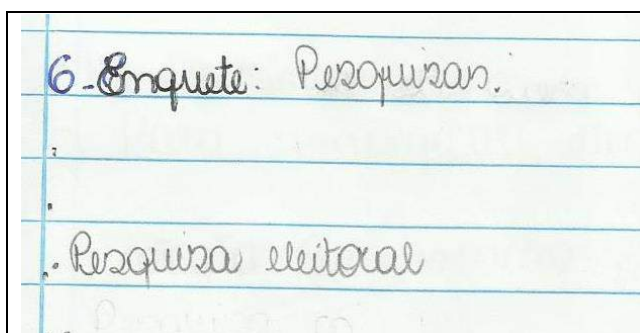 6-Enquete: Pesquisas.
. Pesquisa eleitoral